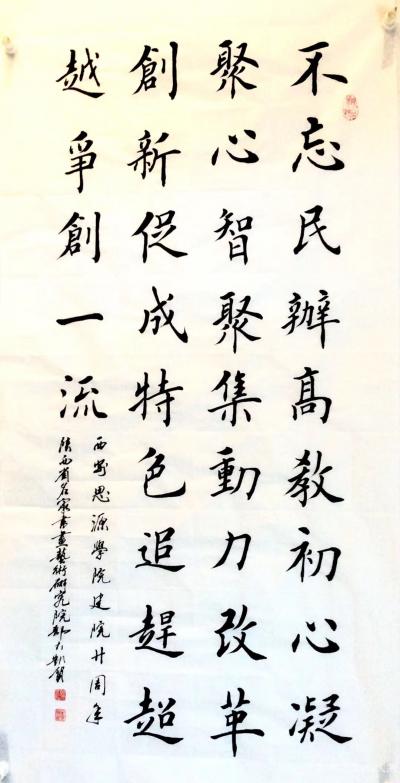 不忘民辦高教初心凝
聚心智聚集動力改革
創新促成特色追趕超
越爭創一流
西安思源學院建院廿周年
陝西省名家書畫藝術研究院